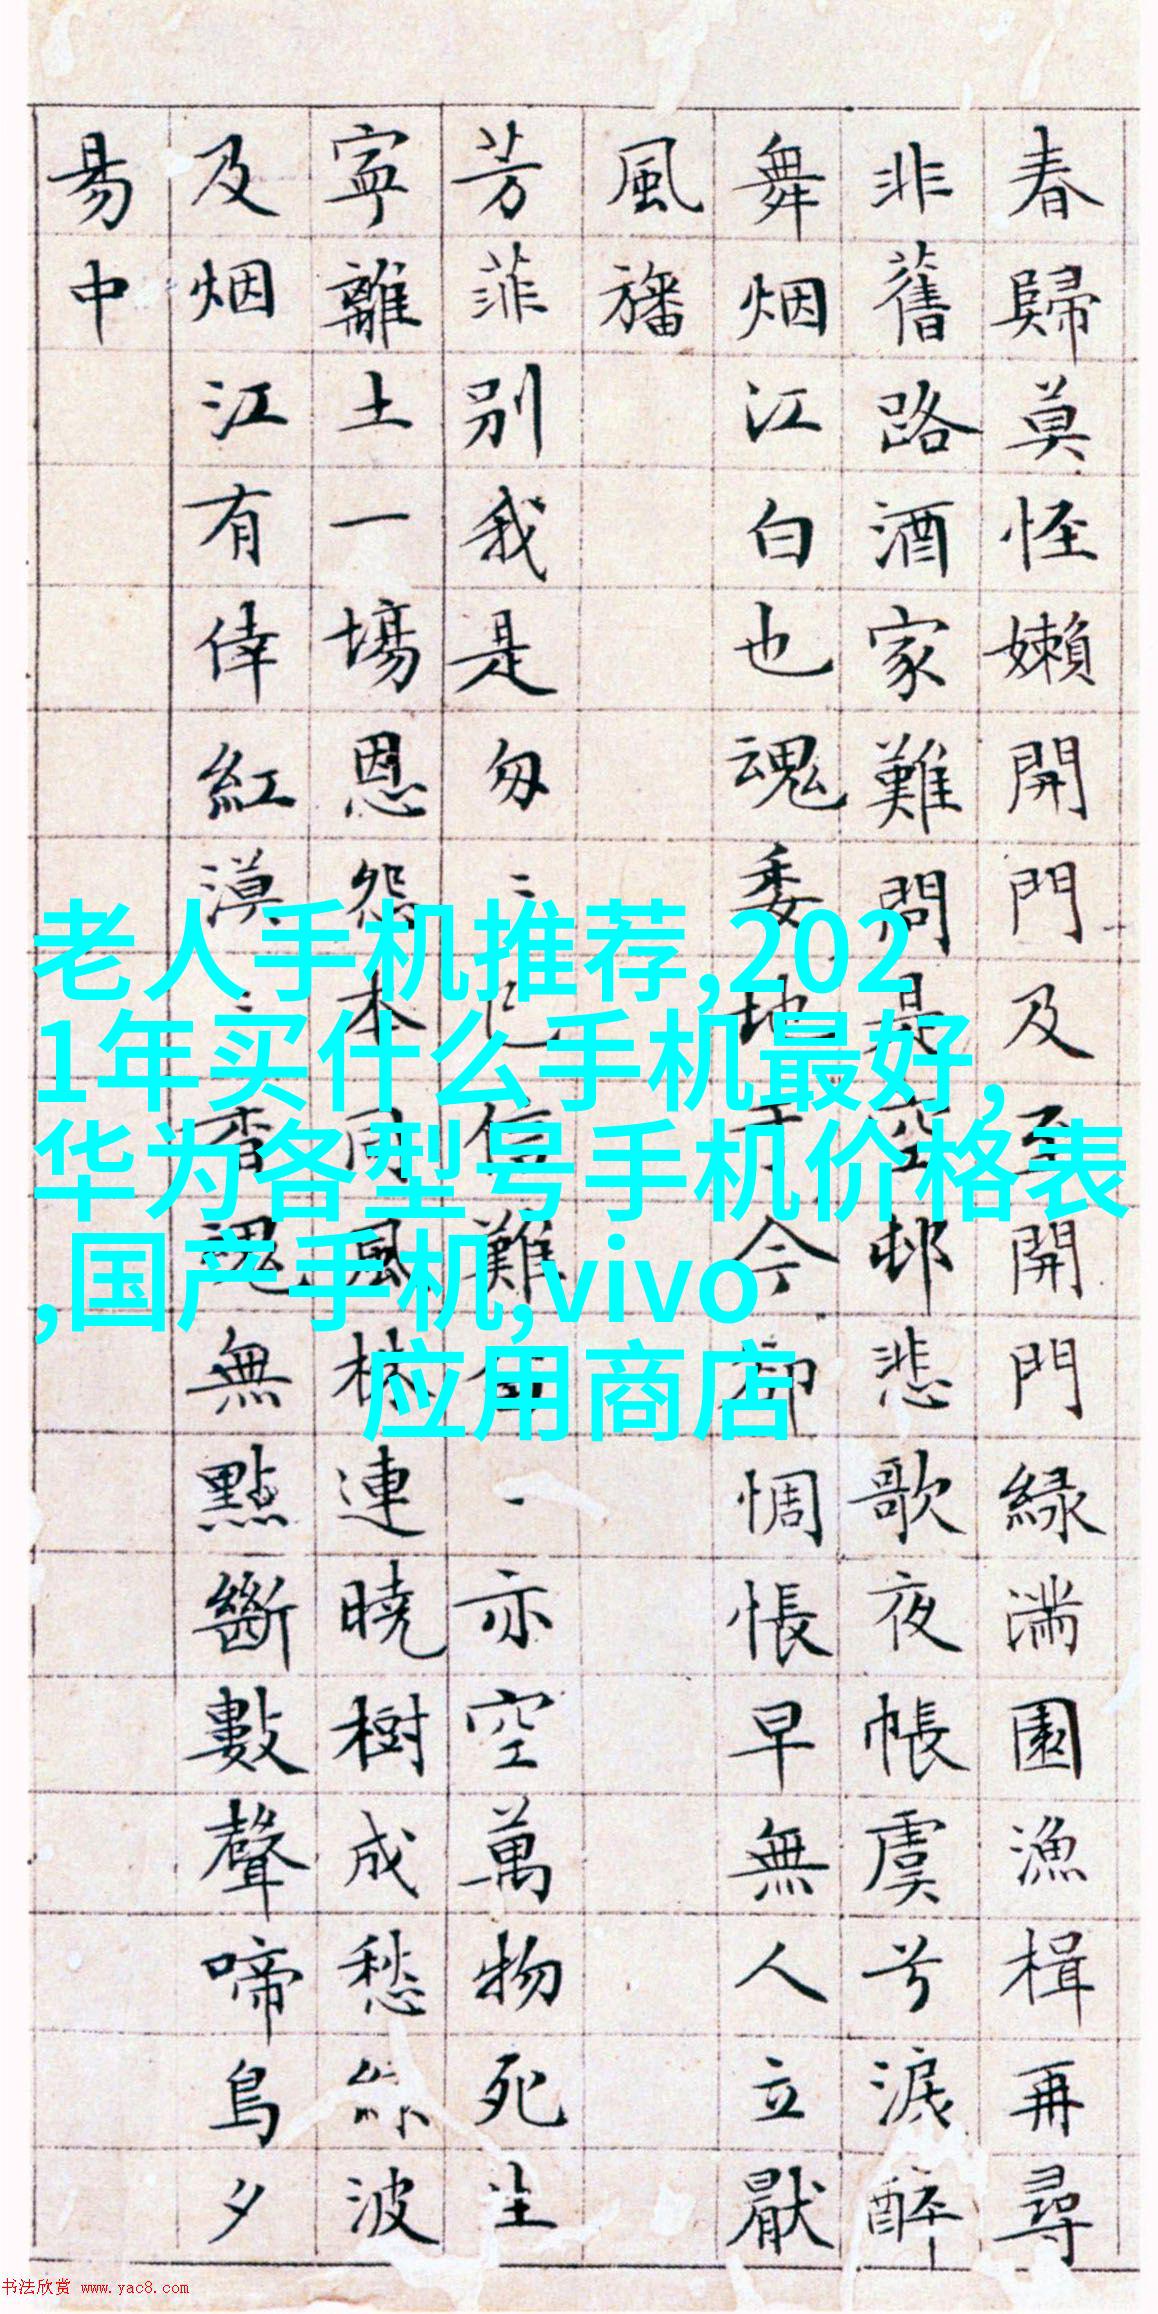 春歸莫怪嬾開門及至開門緑滿園漁楫再尋
非舊路酒家難問是空邨悲歌夜帳虞兮淚醉
舞烟江白也魂委地于今却惆悵早無人立厭
風旛
芳菲別我是匆〻已信難亦空萬物死生
寧離土一場恩怨本同風連曉樹成愁波
及烟江有倖紅漠〻香魂無點斷數聲啼鳥夕
易中
老人手机推荐,202
1年买什么手机最好,
华为各型号手机价格表
,国产手机,vivo
应用商店
书法欣赏 www.yac8.com